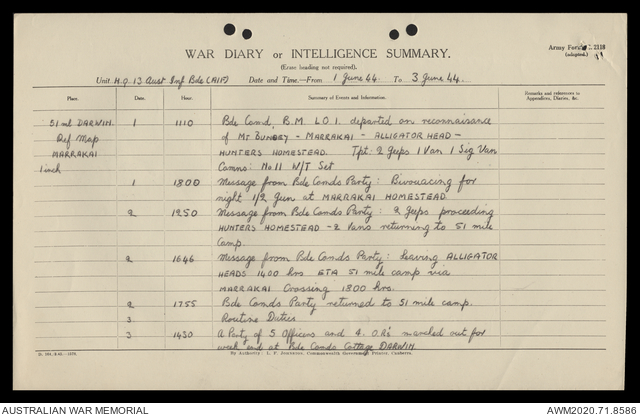 Army Form C. 2118
(adapted.)
WAR DIARY or INTELLIGENCE SUMMARY.
(Erase heading not required).
Unit H.Q. 13 Aust Inf Bde (AIF) Date and Time—From 1 June 44. To 3 June 44.
Place. Date. Hour. Summary of Events and Information. Remarks and references to Appendices, Diaries, &c.
51 ml DARWIN. 1 1110 Bde Comd, B.M. L.O.1. departed on reconnaisance
Ref Map of MT BUNDEY - MARRAKAI - ALLIGATOR HEAD -
MARRAKAI HUNTERS HOMESTEAD. Tpt: 2 Jeeps 1 Van 1 Sig Van
1 inch Comns: No 11 W/T Set
1 1800 Message from Bde Comds Party: Bivouacing for
night 1/2 Jun at MARRAKAI HOMESTEAD
2 1250 Message from Bde Comds Party: 2 Jeeps proceeding
HUNTERS HOMESTEAD - 2 Vans returning to 51 mile
Camp
2 1646 Message from Bde Comds Party: Leaving ALLIGATOR
HEADS 1400 hrs ETA 51 mile camp via
MARRAKAI Crossing 1800 hrs.
2 1755 Bde Comds Party returned to 51 mile camp.
3 Routine Duties
3 1430 A Party of 5 Officers and 4 O.R's marched out for
week end at Bde Comds Cottage DARWIN.
By Authority: L. F. Johnston, Commonwealth Government Printer, Canberra.
AUSTRALIAN WAR MEMORIAL AWM2020.71.8586